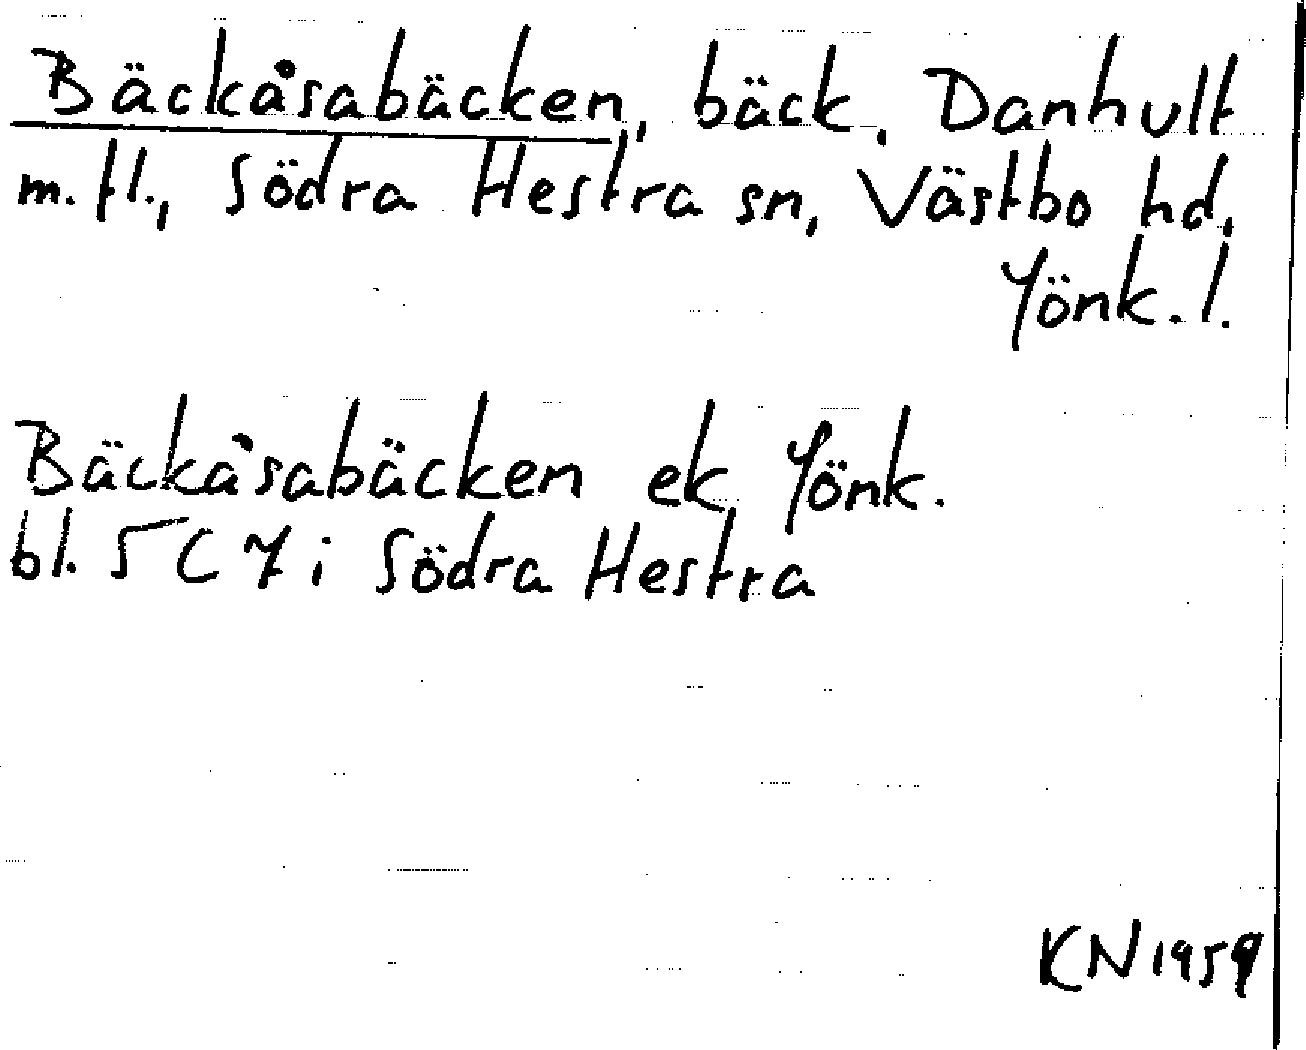 Bäckåsabäcken, bäck. Danhult
m.fl., Södra Hestra sn, Västbo hd,
Jönk.l.
Bäckåsabäcken ek Jönk.
bl. 5C7i Södra Hestra
KN 1959